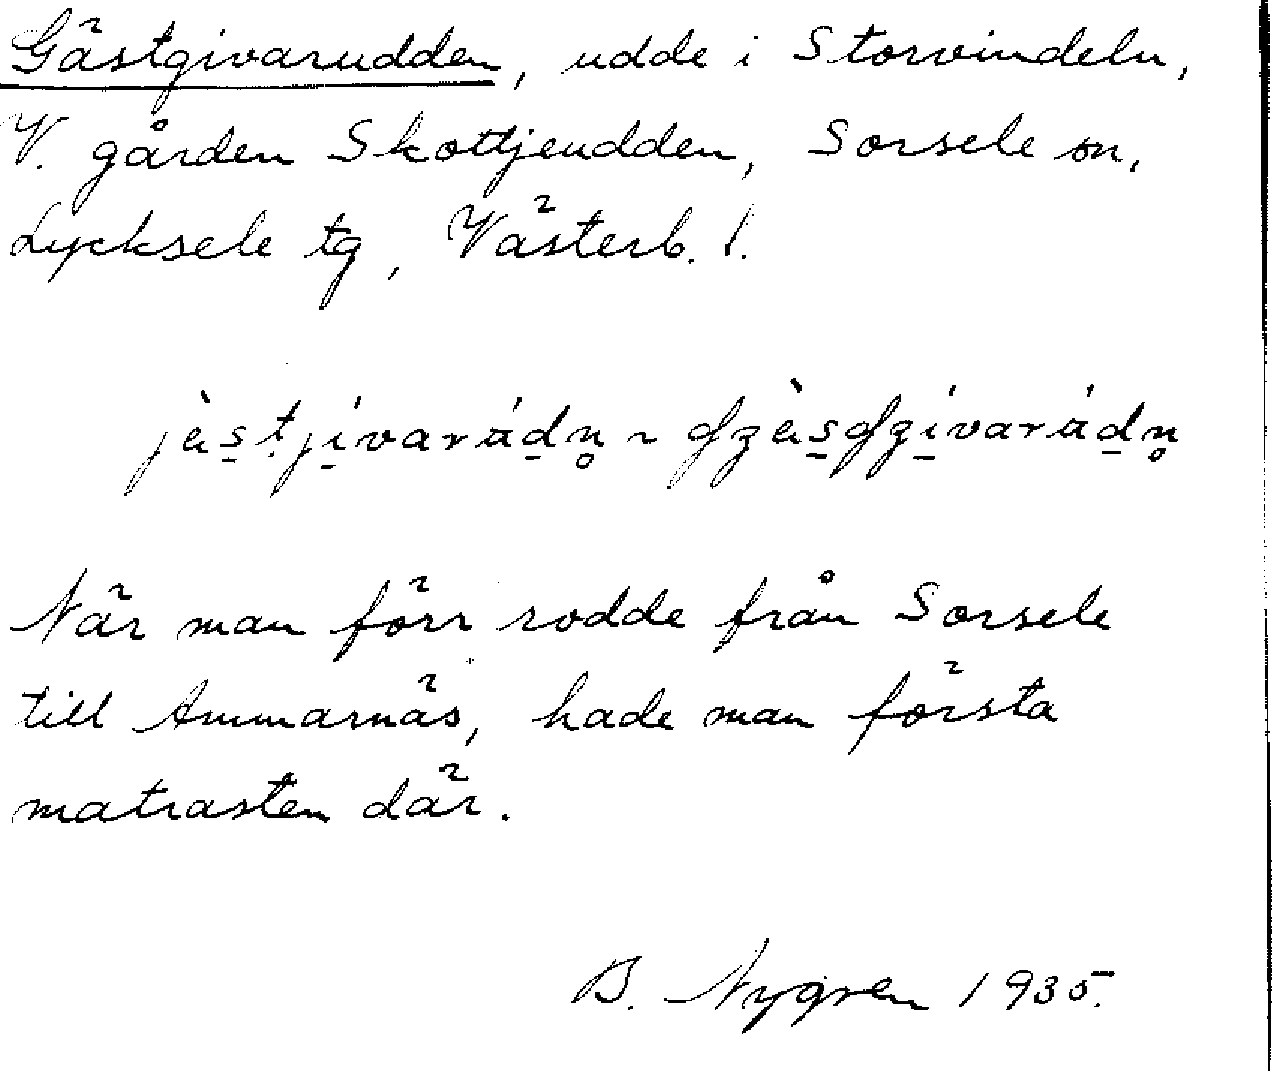 Gästgivarudden, udde i Storvindeln,
V. gården Skottjeudden, Sorsele sn,
Lycksele tg, Västerb. l.
När man förr rodde från Sorsele
till Ammarnäs, hade man första
matrasten där.
B. Nygren 1935.